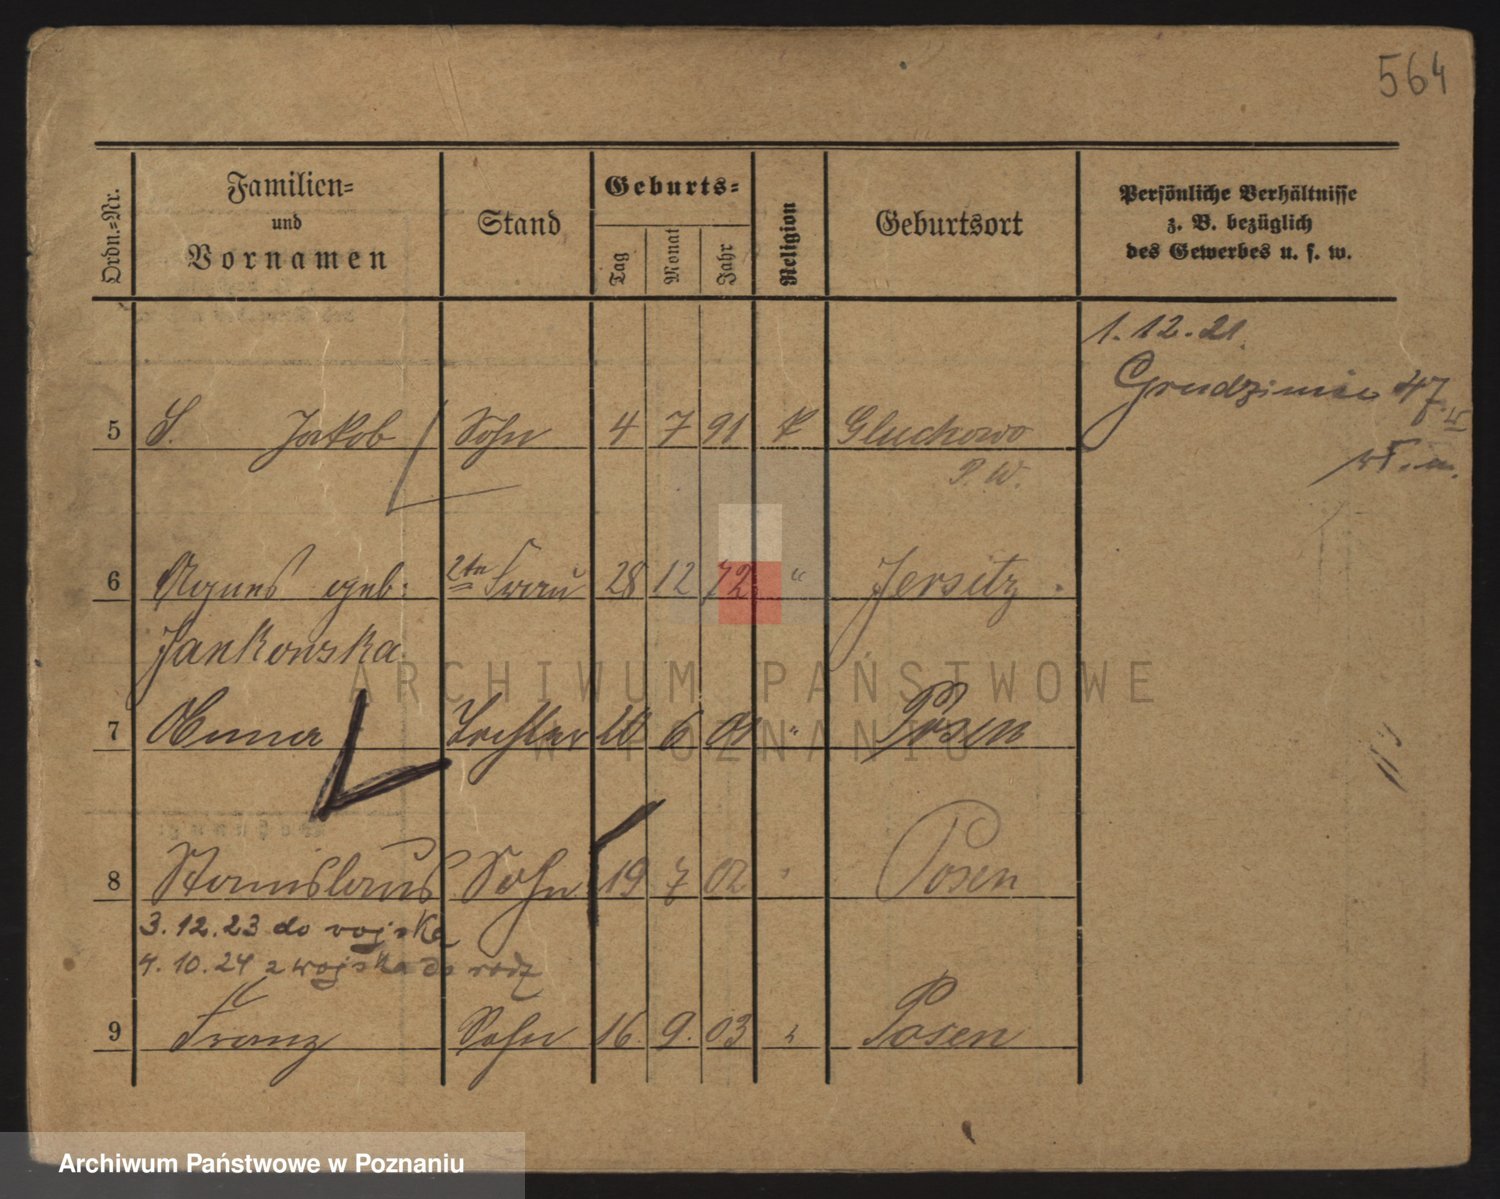 564
Ordn.=Nr.
Familien=
und
Vornamen
Stand
Geburts=
Tag
Monat
Jahr
Religion
Geburtsort
Persönliche Verhältnisse
z. B. bezüglich
des Gewerbes u. s. w.
1. 12. 21.
Grudzieniec 47
5 S. Jakob Sohn 4 7 91 K Gluchowo
P. W.
6 Agnes geb: 2te Frau 28 12 72 " Jersitz.
Jankowska
ARCHIWUM PAŃSTWOWE
W POZNANIU
7 Anna Tochter 10 6 01 " Posen
8 Stanislaus Sohn 19 7 02 " Posen
3. 12. 23 do wojska
4. 10. 24 z wojska do rodz
9 Franz Sohn 16. 9. 03 " Posen
Archiwum Państwowe w Poznaniu